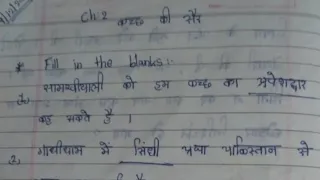 Ch.2 कच्छ की सैर
* Fill in the blanks:-
1, सामख्यीयाली को हम कच्छ का प्रवेशद्वार
कह सकते हैं ।
2, गांधीधाम में सिंधी प्रजा पाकिस्तान से